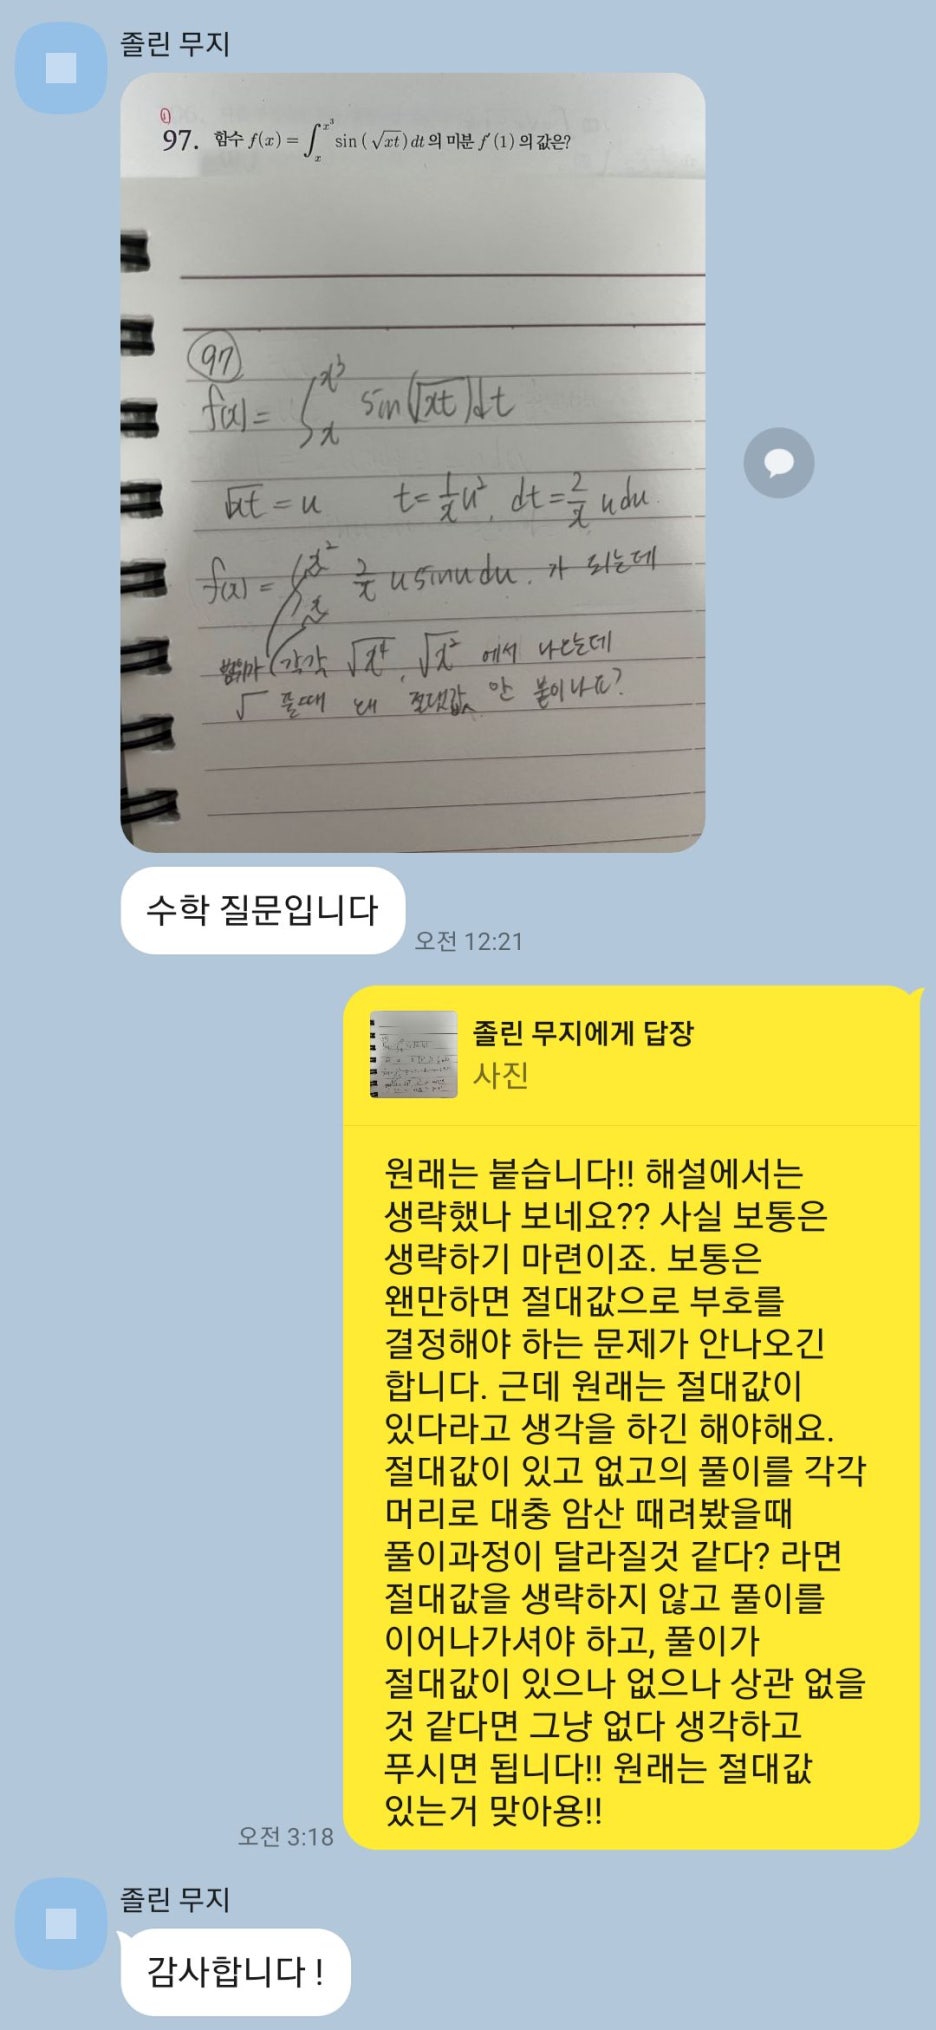 졸린 무지
①
97. 함수 f(x) = ∫_x^{x³} sin(√xt) dt 의 미분 f′(1) 의 값은?
97
f(x) = ∫_x^{x³} sin(√xt)dt
√xt = u t = 1/x u², dt = 2/x u du.
f(x) = ∫_x^{x²} 2/x u sin u du. 가 되는데
범위가 (각각 √x⁴, √x² 에서 나오는데
√ 풀때 왜 절댓값 안 붙이나요?
수학 질문입니다
오전 12:21
졸린 무지에게 답장
사진
원래는 붙습니다!! 해설에서는
생략했나 보네요?? 사실 보통은
생략하기 마련이죠. 보통은
왠만하면 절대값으로 부호를
결정해야 하는 문제가 안나오긴
합니다. 근데 원래는 절대값이
있다라고 생각을 하긴 해야해요.
절대값이 있고 없고의 풀이를 각각
머리로 대충 암산 때려봤을때
풀이과정이 달라질것 같다? 라면
절대값을 생략하지 않고 풀이를
이어나가셔야 하고, 풀이가
절대값이 있으나 없으나 상관 없을
것 같다면 그냥 없다 생각하고
푸시면 됩니다!! 원래는 절대값
있는거 맞아용!!
오전 3:18
졸린 무지
감사합니다 !